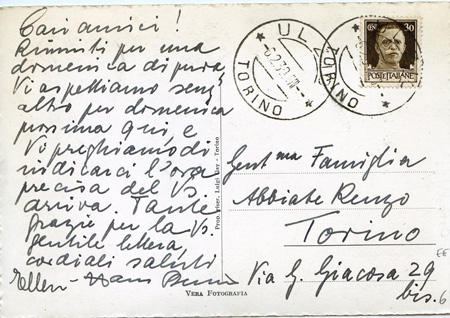 Cari amici!
Riuniti per una
domenica di pura,
Vi aspettiamo senz'
altro per domenica
prossima qui e
Vi preghiamo di
indicarci l'ora
precisa del Vs.
arriva. Tante
grazie per la Vs.
gentile lettera,
cordiali saluti
Ellen - Hans
ULZ
TORINO
6.2.39.XVII
ULZ
TORINO
30
POSTE ITALIANE
Gent.ma Famiglia
Abbiate Renzo
Torino
Via G. Giacosa 29
bis.
EE
6
Torino
VERA FOTOGRAFIA